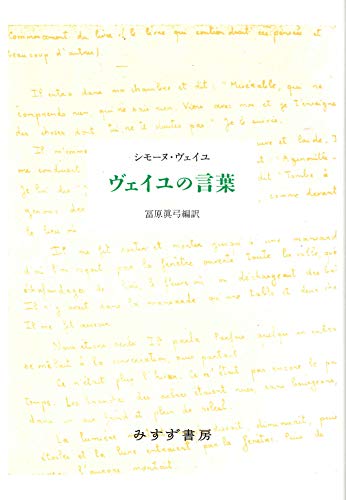 Commencement du livre (le livre qui contient ces pensées et
beaucoup d'autres)
Il entra dans ma chambre et dit "Misérable, qui ne
comprends rien, qui ne sais rien. Viens avec moi et je t'enseignerai
des choses dont tu ne te doutes pas" Je le suivis.
Il m'emmena
et laide, I
me conduisit
"Agenouille-
シモーヌ・ヴェイユ
Je lui dis
"Tombe à
ヴェイユの言葉
le lieu où
冨原眞弓編訳
Il me fit sortir et monter jusqu'à une mansarde
d'où l'on voyait par la fenêtre ouverte toute la ville,
échafaudages de bois, le fleuve où on déchargeait des bateaux
Il n'y avait dans la mansarde qu'une table et deux chaises
Il me fit asseoir
Nous étions seuls. Il parla. Parfois, quelqu'un entrait,
se mêlait à la conversation, puis partait
Ce n'était plus l'hiver. Ce n'était pas encore le prin-
temps. Les branches des arbres étaient nues, sans bourgeons,
dans un air froid et plein de soleil.
La lumière
diminuait, puis
les étoiles et la lune entraient par la fenêtre. Puis de
nouveau l'aurore montait.
みすず書房